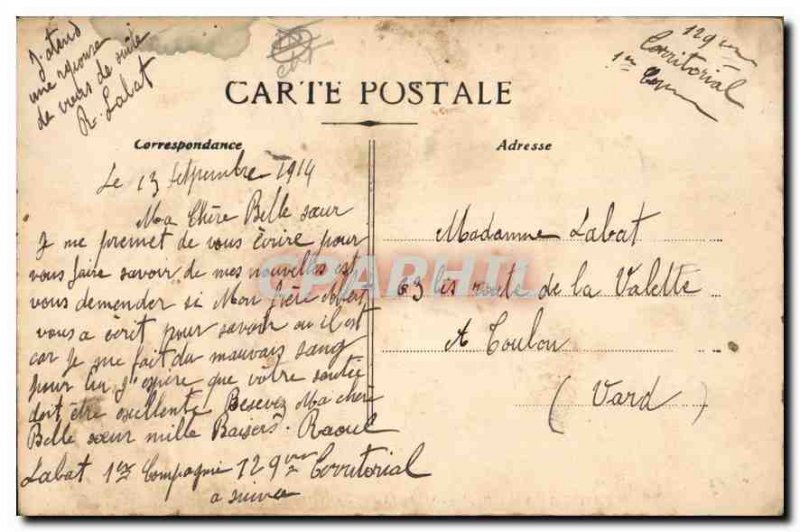 J'atend
une reponse
de vous de suite
R. Labat
129em
Territorial
1er Comp
CARTE POSTALE
Correspondance
Adresse
Le 13 Setpembre 1914
Ma Chère Belle sœur
Je me premet de vous écrire pour
vous faire savoir de mes nouvelles est
vous demender si Mon frère Robert
vous a écrit pour savoir ou il est
car je me fait du mauvais sang
pour lui J'espère que vôtre santée
doit être exellente Resevez Ma chère
Belle sœur mille Baisers. Raoul
Labat 1er Compagnie 129em Territorial
a suivre
Madamme Labat
63 bis route de la Valette
A Toulon
(Vard)
CPARHIL